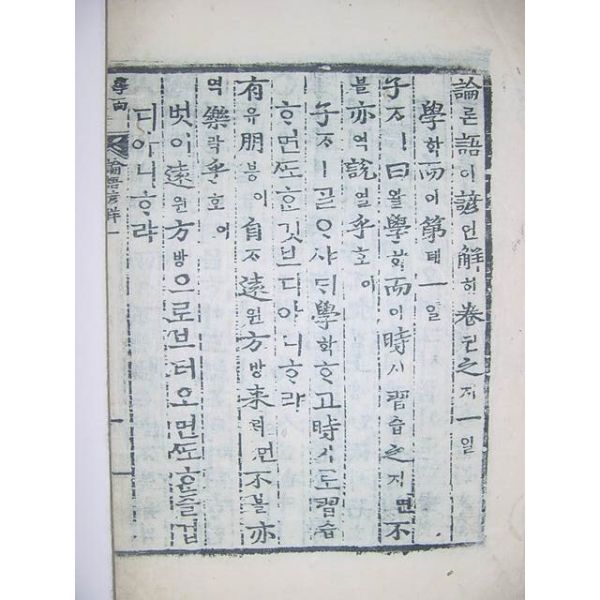 論론語어諺언解ᄒᆡ卷권之지一일
學ᄒᆞᆨ而이第뎨一일
子ᄌᆞㅣ曰왈學ᄒᆞᆨ而이時시習습之지면不
블亦역說열乎호아
子ᄌᆞㅣᄀᆞᆯᄋᆞ샤ᄃᆡ學ᄒᆞᆨᄒᆞ고時시로習습
ᄒᆞ면ᄯᅩᄒᆞᆫ깃브디아니ᄒᆞ랴
有유朋붕이自ᄌᆞ遠원方방來ᄅᆡ면不블亦
역樂락乎호아
벗이遠원方방으로브터오면ᄯᅩᄒᆞᆫ즐겁
디아니ᄒᆞ랴
論語諺解一